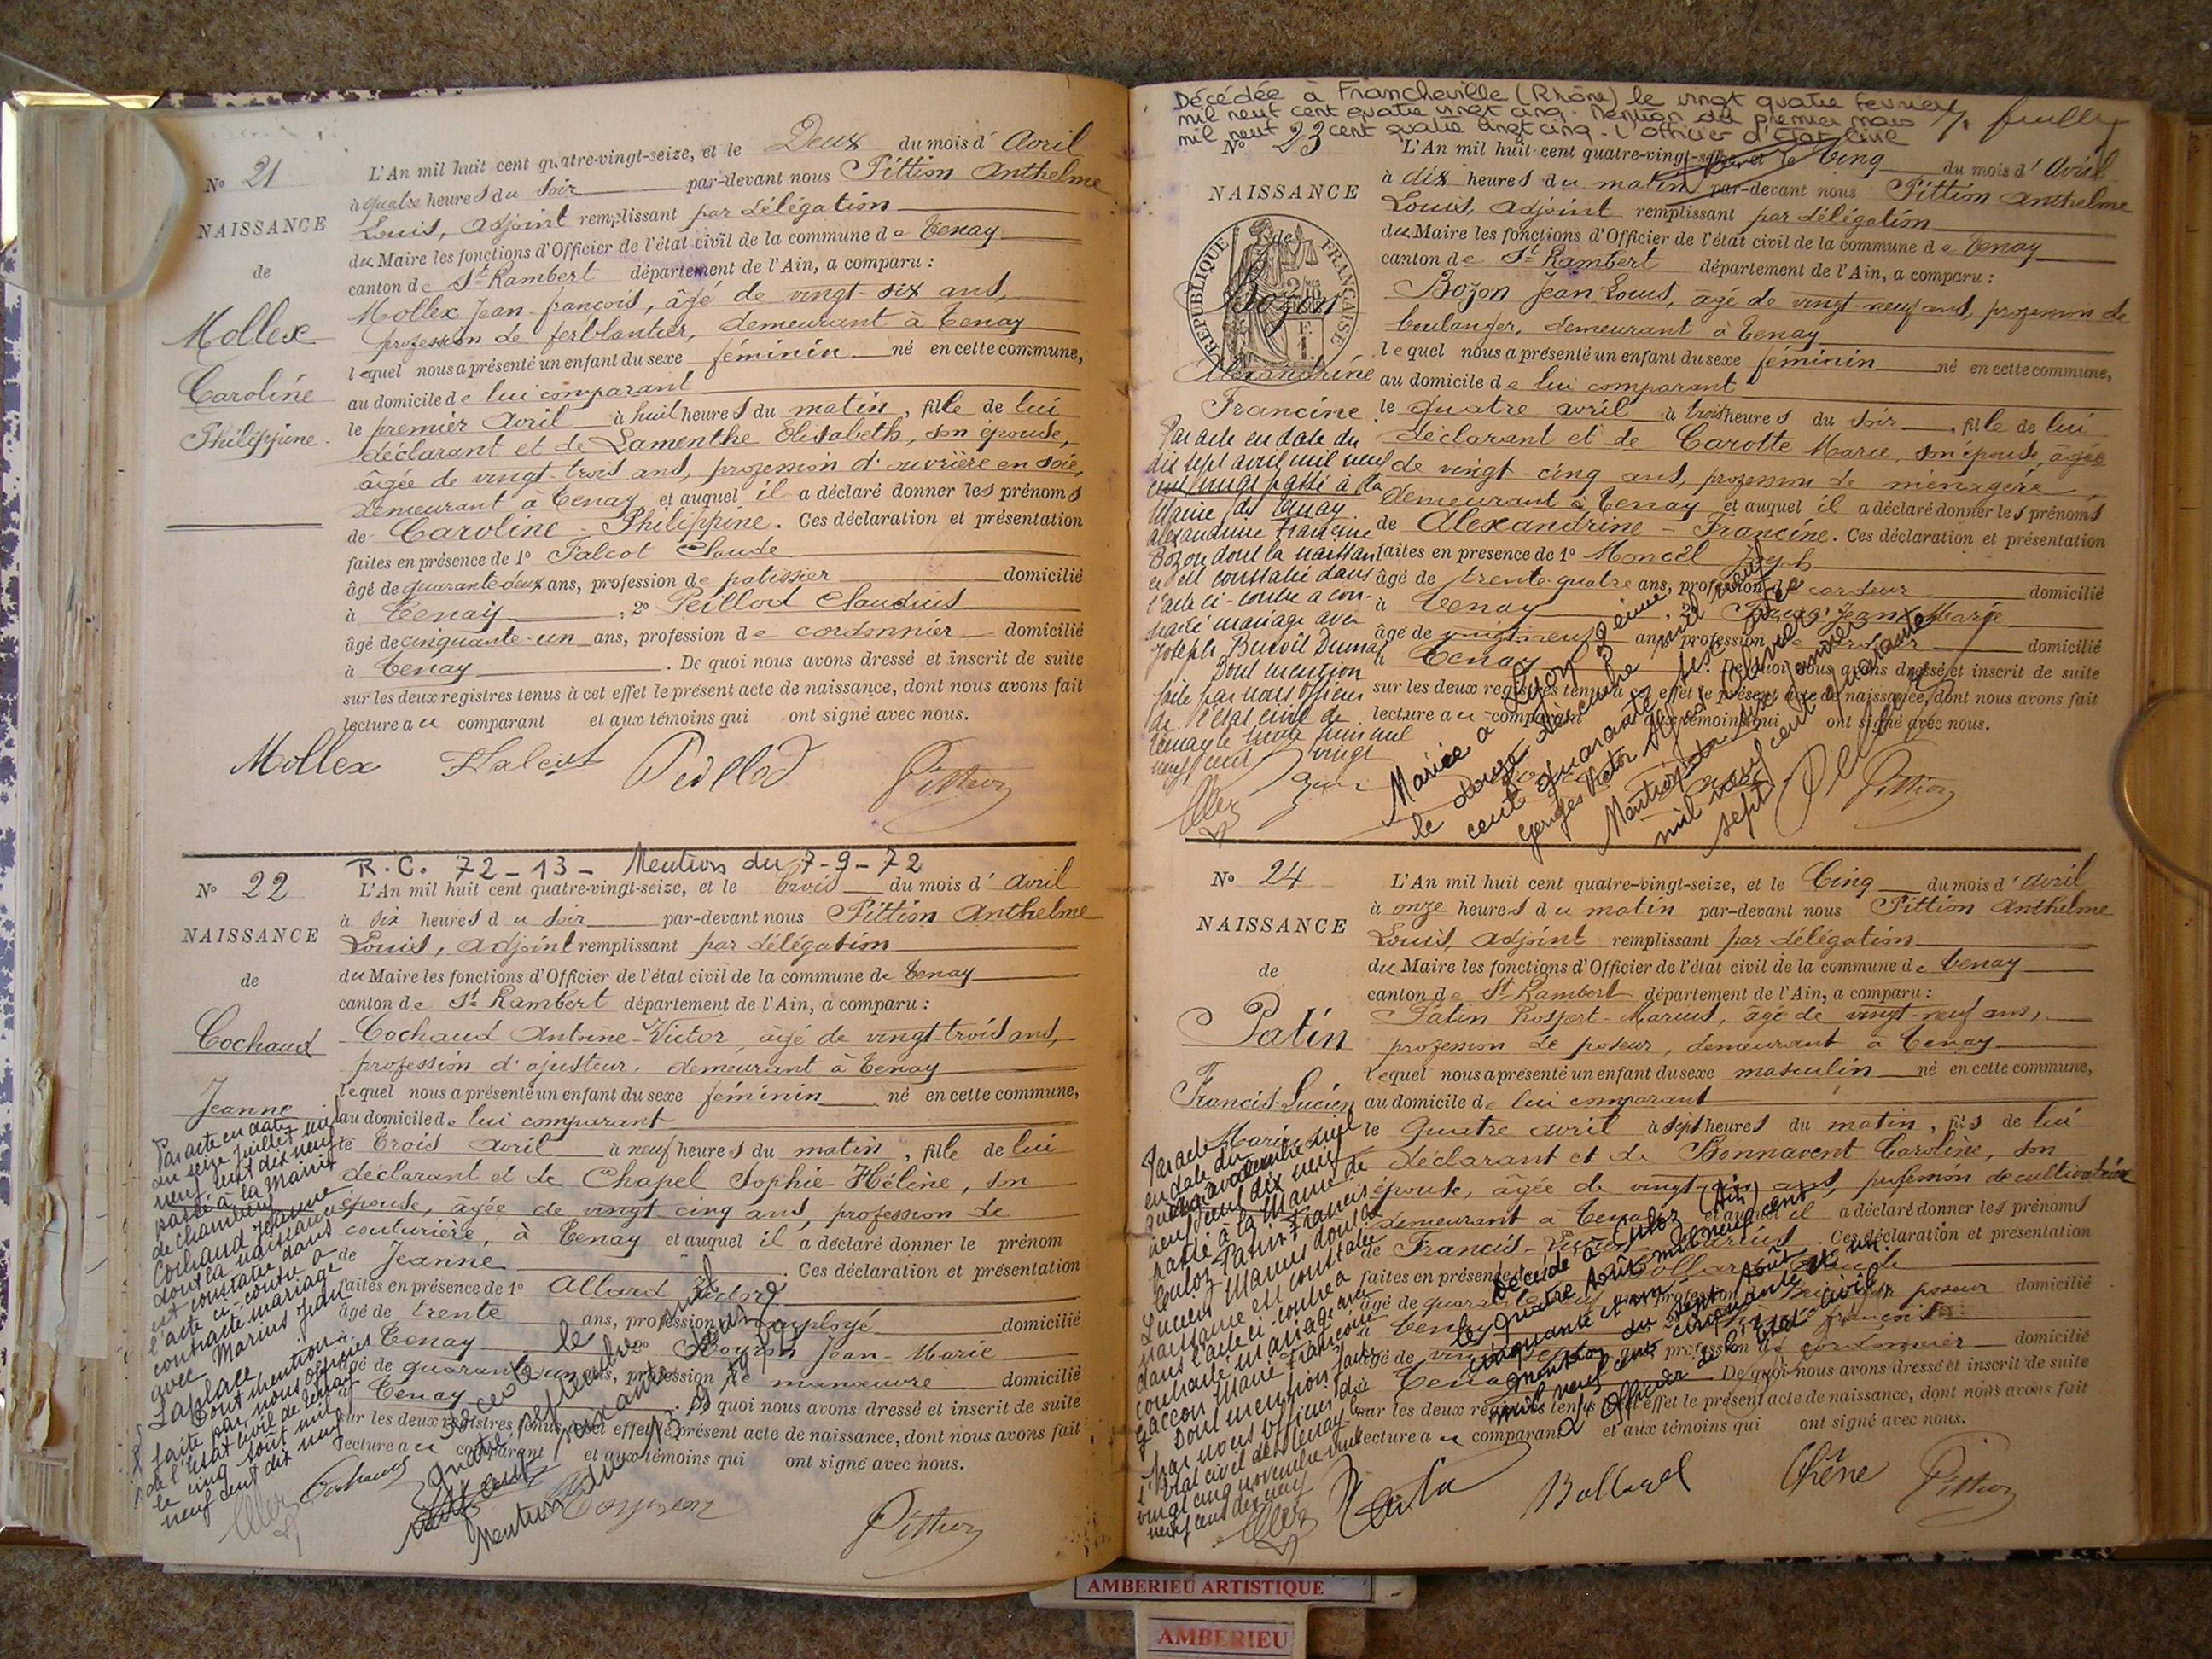 N° 21
NAISSANCE
de
Mollex
Caroline
Philippine.
L'An mil huit cent quatre-vingt-seize, et le Deux du mois d' Avril
à quatre heures du soir par-devant nous Pittion Anthelme
Louis, adjoint remplissant par délégation
du Maire les fonctions d'Officier de l'état civil de la commune de Tenay
canton de St Rambert département de l'Ain, a comparu :
Mollex Jean-françois, âgé de vingt-six ans,
profession de ferblantier, demeurant à Tenay
lequel nous a présenté un enfant du sexe féminin né en cette commune,
au domicile de lui comparant
le premier avril à huit heures du matin, fille de lui
déclarant et de Lamenthe Elisabeth, son épouse,
âgée de vingt-trois ans, profession d'ouvrière en soie,
demeurant à Tenay et auquel il a déclaré donner les prénoms
de Caroline - Philippine. Ces déclaration et présentation
faites en présence de 1° Falcot Claude
âgé de quarante-deux ans, profession de patissier domicilié
à Tenay, 2° Peillod Claudius
âgé de cinquante-un ans, profession de cordonnier domicilié
à Tenay. De quoi nous avons dressé et inscrit de suite
sur les deux registres tenus à cet effet le présent acte de naissance, dont nous avons fait
lecture au comparant et aux témoins qui ont signé avec nous.
Mollex Falcot Peillod Pittion
R.C. 72-13- Mention du 7-9-72
N° 22
NAISSANCE
de
Cochaud
Jeanne
L'An mil huit cent quatre-vingt-seize, et le Trois du mois d' Avril
à six heures du soir par-devant nous Pittion Anthelme
Louis, adjoint remplissant par délégation
du Maire les fonctions d'Officier de l'état civil de la commune de Tenay
canton de St Rambert département de l'Ain, a comparu :
Cochaud Antoine-Victor, âgé de vingt-trois ans,
profession d'ajusteur, demeurant à Tenay
lequel nous a présenté un enfant du sexe féminin né en cette commune,
au domicile de lui comparant
le Trois avril à neuf heures du matin, fille de lui
déclarant et de Chapel Sophie-Hélène, son
épouse, âgée de vingt cinq ans, profession de
couturière, à Tenay et auquel il a déclaré donner le prénom
de Jeanne. Ces déclaration et présentation
faites en présence de 1° Allard
âgé de trente ans, profession d'employé domicilié
à Tenay 2° Jean-Marie
âgé de quarante un ans, profession de manœuvre domicilié
à Tenay. De quoi nous avons dressé et inscrit de suite
sur les deux registres tenus à cet effet le présent acte de naissance, dont nous avons fait
lecture au comparant et aux témoins qui ont signé avec nous.
Par acte en date
du seize juillet mil
neuf cent dix neuf
passé à la Mairie
de Chambéry
Cochaud Jeanne
dont la naissance
est constatée dans
l'acte ci-contre a
contracté mariage
avec Marius Jean
Laplace
Dont mention
faite par nous officier
de l'état civil de Tenay
le cinq août mil
neuf cent dix neuf
Décédée
quatre septembre mil
neuf cent soixante
Mention du
Cochaud Pittion
Décédée à Francheville (Rhône) le vingt quatre février
mil neuf cent quatre vingt cinq. Mention du premier mars
mil neuf cent quatre vingt cinq. L'officier d'Etat Civil
7e feuillet
N° 23
NAISSANCE
de
REPUBLIQUE FRANÇAISE
Bozon
Alexandrine
Francine
L'An mil huit cent quatre-vingt-seize, et le Cinq du mois d' Avril
à dix heures du matin par-devant nous Pittion Anthelme
Louis, adjoint remplissant par délégation
du Maire les fonctions d'Officier de l'état civil de la commune de Tenay
canton de St Rambert département de l'Ain, a comparu :
Bozon Jean Louis, âgé de vingt-neuf ans, profession de
boulanger, demeurant à Tenay
lequel nous a présenté un enfant du sexe féminin né en cette commune,
au domicile de lui comparant
le quatre avril à trois heures du soir, fille de lui
déclarant et de Carotte Marie, son épouse, âgée
de vingt-cinq ans, profession de ménagère,
demeurant à Tenay et auquel il a déclaré donner les prénoms
de Alexandrine - Francine. Ces déclaration et présentation
faites en présence de 1° Moncel Joseph
âgé de trente-quatre ans, profession de cardeur domicilié
à Tenay, 2° Jean-Marie
âgé de vingt-neuf ans, profession de domicilié
à Tenay. De quoi nous avons dressé et inscrit de suite
sur les deux registres tenus à cet effet le présent acte de naissance, dont nous avons fait
lecture au comparant et aux témoins qui ont signé avec nous.
Par acte en date du
dix sept avril mil neuf
cent vingt passé à la
Mairie de Tenay
Alexandrine Francine
Bozon dont la naissan
ce est constatée dans
l'acte ci-contre a con-
tracté mariage avec
Joseph Benoît Dumas
Dont mention
faite par nous officier
de l'état civil de
Tenay le
neuf cent vingt
Mariée à Lyon 3eme
le douze décembre mil neuf
cent quarante six
Georges Victor Alfred
Mention du six janvier
mil neuf cent quarante
sept
Pittion
N° 24
NAISSANCE
de
Patin
Francis-Lucien
Marius
L'An mil huit cent quatre-vingt-seize, et le Cinq du mois d' Avril
à onze heures du matin par-devant nous Pittion Anthelme
Louis, adjoint remplissant par délégation
du Maire les fonctions d'Officier de l'état civil de la commune de Tenay
canton de St Rambert département de l'Ain, a comparu :
Patin Rospert-Marius, âgé de vingt-neuf ans,
profession de poseur, demeurant à Tenay
lequel nous a présenté un enfant du sexe masculin né en cette commune,
au domicile de lui comparant
le quatre avril à sept heures du matin, fils de lui
déclarant et de Bonnavent Caroline, son
épouse, âgée de vingt-six ans, profession de cultivatrice
demeurant à Tenay et auquel il a déclaré donner les prénoms
de Francis-Lucien-Marius. Ces déclaration et présentation
faites en présence de 1° Bollard
âgé de quarante ans, profession de poseur domicilié
à Tenay françois
âgé de vingt-sept ans, profession de cordonnier domicilié
à Tenay. De quoi nous avons dressé et inscrit de suite
sur les deux registres tenus à cet effet le présent acte de naissance, dont nous avons fait
lecture au comparant et aux témoins qui ont signé avec nous.
Par acte
en date du
mil
neuf cent dix neuf
passé à la Mairie de
Culoz Patin Francis
Lucien Marius dont la
naissance est constatée
dans l'acte ci-contre a
contracté mariage avec
Gaccon Marie Françoise
Dont mention faite
par nous officier de
l'état civil de Tenay le
vingt cinq novembre mil
neuf cent dix neuf
Décédé à Culoz (Ain)
le quatre août mil neuf cent
cinquante et un
Mention du sept août
mil neuf cent cinquante et un.
L'officier de l'état civil,
Patin Bollard Chêne Pittion
AMBERIEU ARTISTIQUE
AMBERIEU